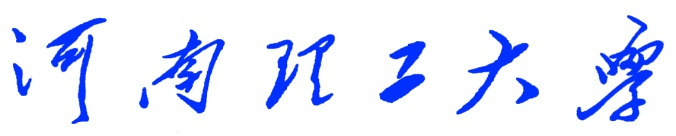 河南理工大學